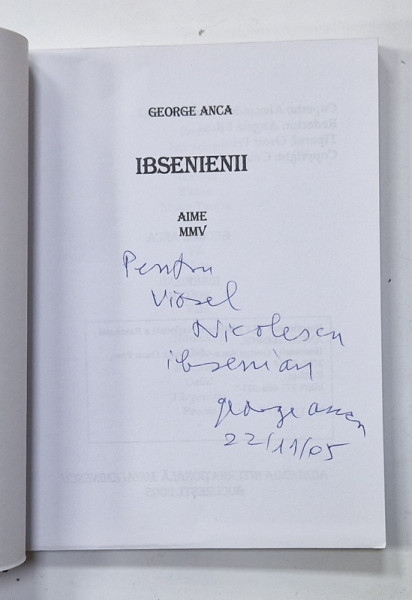 GEORGE ANCA
IBSENIENII
AIME
MMV
Pentru
Viorel
Nicolescu
ibsenian
george anca
22/11/05